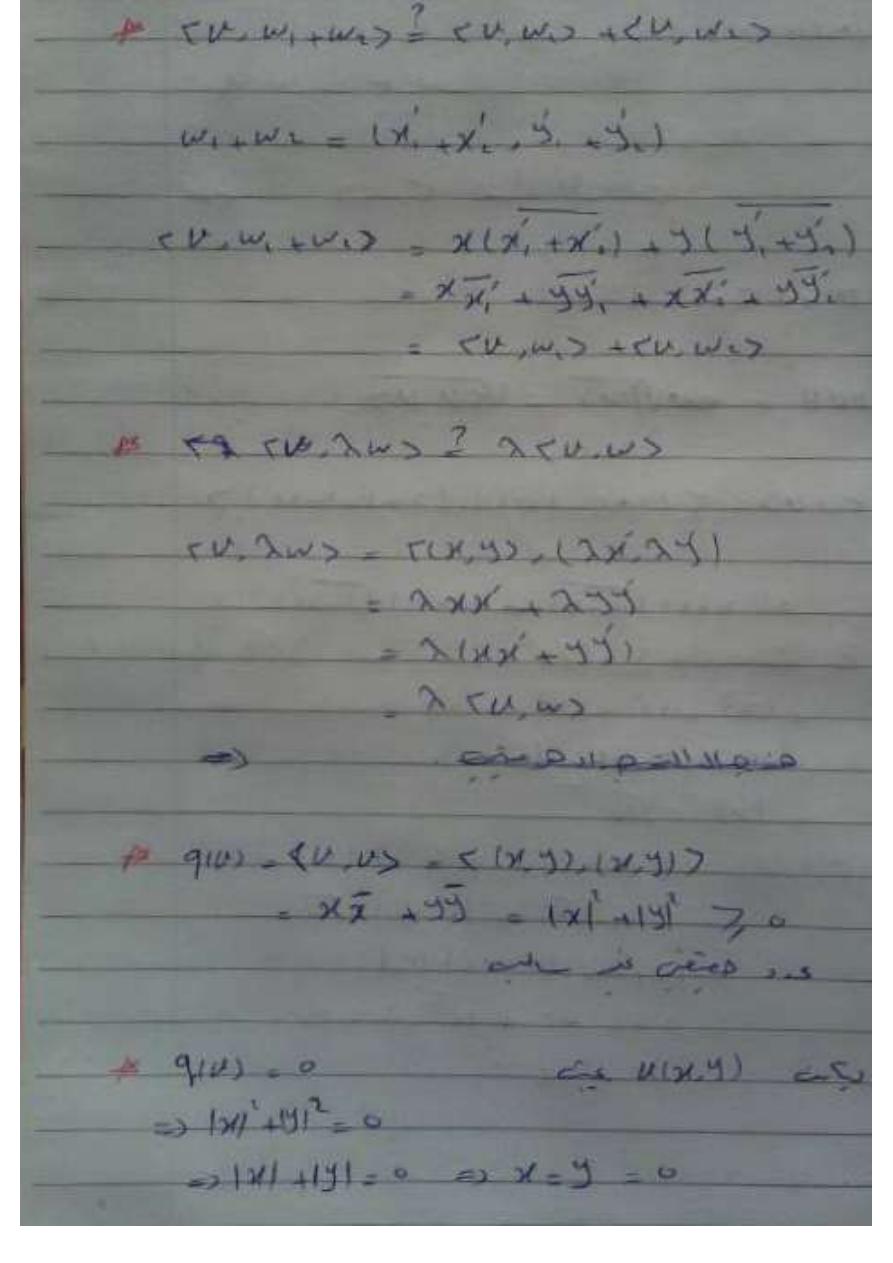 <v, w₁+w₂> ≟ <v, w₁> + <v, w₂>
w₁+w₂ = (x₁'+x₂', y₁'+y₂')
<v, w₁+w₂> = x(\overline{x₁'+x₂'}) + y(\overline{y₁'+y₂'})
= x\overline{x₁'} + y\overline{y₁'} + x\overline{x₂'} + y\overline{y₂'}
= <v, w₁> + <v, w₂>
<v, λw> ≟ λ<v, w>
<v, λw> = <(x,y), (λx', λy')
= λxx' + λyy'
= λ(xx' + yy')
= λ <v, w>
⇒
q(v) = <v, v> = <(x,y), (x,y)>
= x\overline{x} + y\overline{y} = |x|² + |y|² ≥ 0
عدد حقيقي غير سالب
q(v) = 0 ليكن v(x,y) حيث
⇒ |x|² + |y|² = 0
⇒ |x| + |y| = 0 ⇒ x = y = 0